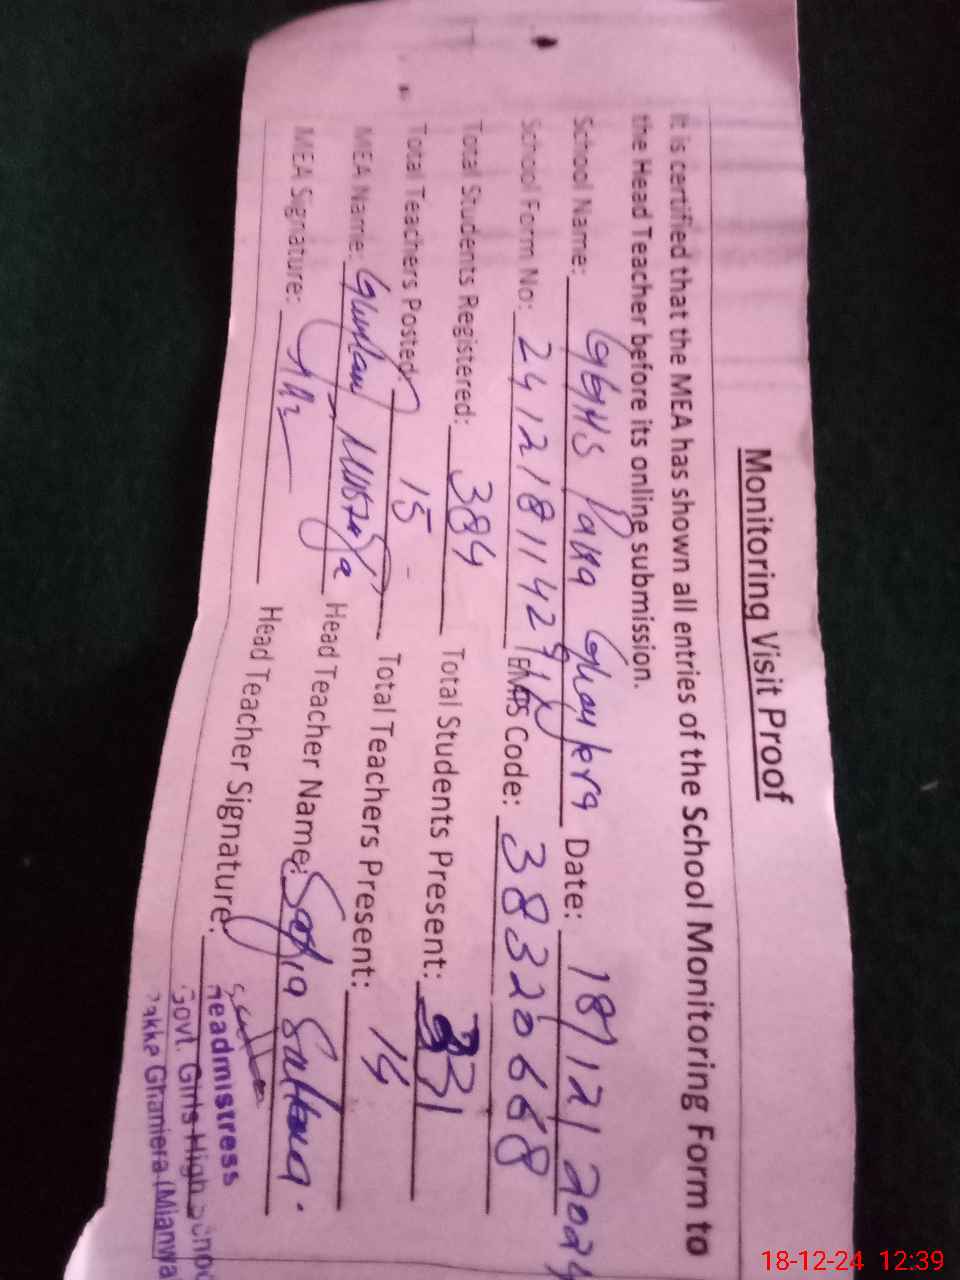 Monitoring Visit Proof
It is certified that the MEA has shown all entries of the School Monitoring Form to
the Head Teacher before its online submission.
School Name: GGHS Pakka Date: 18/12/2024
School Form No: EMIS Code: 38320668
Total Students Registered: 384 Total Students Present: 331
Total Teachers Posted: 15 Total Teachers Present: 14
MEA Name: Ghulam Mustafa Head Teacher Name: Safia Sultana.
MEA Signature: Head Teacher Signature:
Headmistress
Govt. Girls High
(Mianwa
18-12-24 12:39